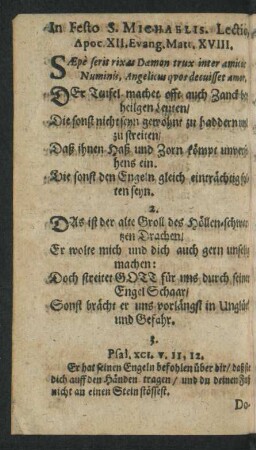 In Festo S. MICHAELIS. Lectio,
Apoc. XII. Evang. Matt. XVIII.
SÆpè serit rixas Dæmon trux inter amicos
Numinis, Angelicus qvos decuisset amor.
DEr Teufel machet offt auch Zanck bey
heilgen Leuten/
Die sonst nicht seyn gewohnt zu haddern und
zu streiten/
Daß ihnen Haß und Zorn kömpt unversehens ein.
Die sonst den Engeln gleich einträchtig solten seyn.
2.
DAs ist der alte Groll des Höllen-schwartzen Drachen/
Er wolte mich und dich auch gern unselig
machen:
Doch streitet GOTT für uns durch seiner
Engel Schaar/
Sonst brächt er uns vorlängst in Unglück
und Gefahr.
3.
Psal. XCI. v. 11, 12.
Er hat seinen Engeln befohlen über dir/ daß sie
dich auff den Händen tragen/ und du deinen Fuß
nicht an einen Stein stössest.
Do-